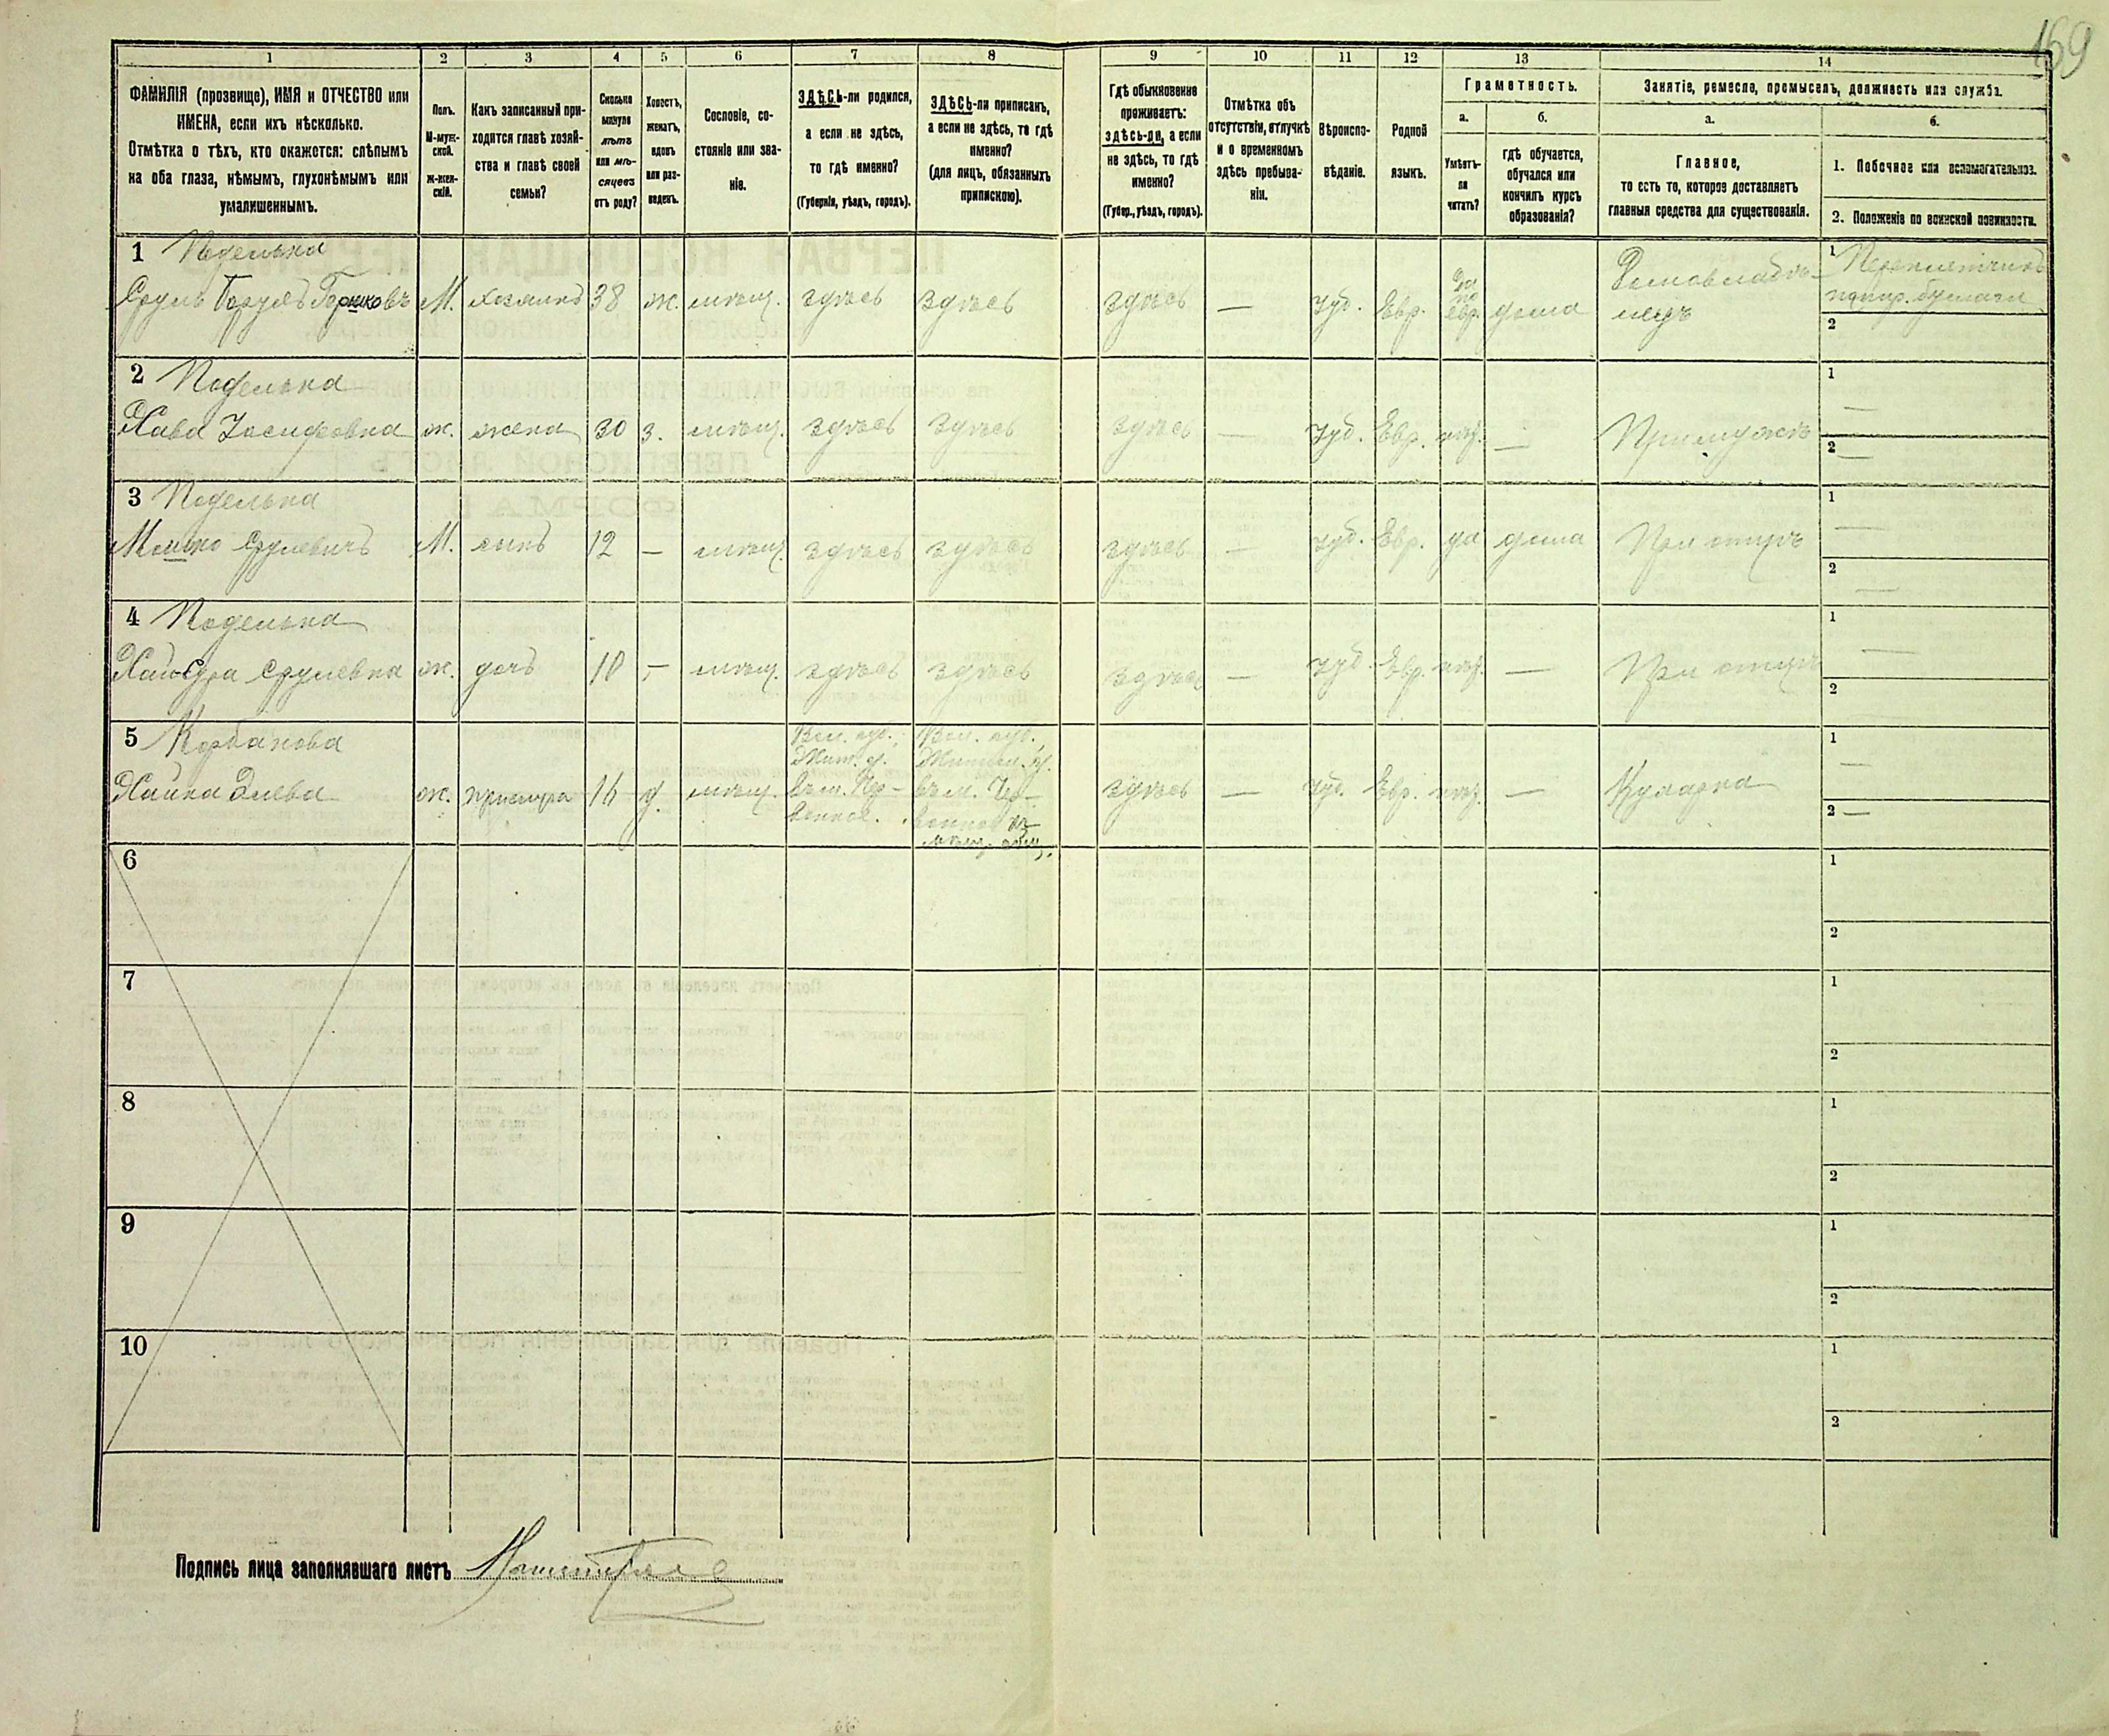 169
1 2 3 4 5 6 7 8 9 10 11 12 13 14
ФАМИЛІЯ (прозвище), ИМЯ и ОТЧЕСТВО или
ИМЕНА, если ихъ нѣсколько.
Отмѣтка о тѣхъ, кто окажется: слѣпымъ
на оба глаза, нѣмымъ, глухонѣмымъ или
умалишеннымъ.
Полъ.
М-муж-
ской.
Ж-жен-
скій.
Какъ записанный при-
ходится главѣ хозяй-
ства и главѣ своей
семьи?
Сколько
минуло
лѣтъ
или мѣ-
сяцевъ
отъ роду?
Холостъ,
женатъ,
вдовъ
или раз-
веденъ.
Сословіе, со-
стояніе или зва-
ніе.
ЗДѢСЬ-ли родился,
а если не здѣсь,
то гдѣ именно?
(Губернія, уѣздъ, городъ).
ЗДѢСЬ-ли приписанъ,
а если не здѣсь, то гдѣ
именно?
(для лицъ, обязанныхъ
припискою).
Гдѣ обыкновенно
проживаетъ:
здѣсь-ли, а если
не здѣсь, то гдѣ
именно?
(Губер., уѣздъ, городъ).
Отмѣтка объ
отсутствіи, отлучкѣ
и о временномъ
здѣсь пребыва-
ніи.
Вѣроиспо-
вѣданіе.
Родной
языкъ.
Грамотность.
а.
Умѣетъ-
ли
читать?
б.
гдѣ обучается,
обучался или
кончилъ курсъ
образованія?
Занятіе, ремесло, промыселъ, должность или служба.
а.
Главное,
то есть то, которое доставляетъ
главныя средства для существованія.
б.
1. Побочное или вспомогательное.
2. Положеніе по воинской повинности.
1 Поделька
Срулъ Борухъ Горшковъ М. хозяинъ 38 ж. мѣщ. здѣсь здѣсь здѣсь — Іуд. Евр. да по евр. дома Домовладѣ-
лецъ
1
2
2 Поделька
Хава Іосифовна ж. жена 30 з. мѣщ. здѣсь здѣсь здѣсь — Іуд. Евр. нѣт. — При мужѣ
1 —
2 —
3 Поделька
Мошко Срулевичъ М. сынъ 12 — мѣщ. здѣсь здѣсь здѣсь — Іуд. Евр. да дома При отцѣ
1 —
2 —
4 Поделька
Срулевна ж. дочь 10 — мѣщ. здѣсь здѣсь здѣсь — Іуд. Евр. нѣт. — При отцѣ
1 —
2 —
5 Корбанова
Хайка ж. прислуга 16 д. мѣщ.
Вол. губ.,
Жит. у.
Вол. губ.,
Житом. у.
здѣсь — Іуд. Евр. нѣт. — Кухарка
1 —
2 —
6
1
2
7
1
2
8
1
2
9
1
2
10
1
2
Подпись лица заполнявшаго листъ